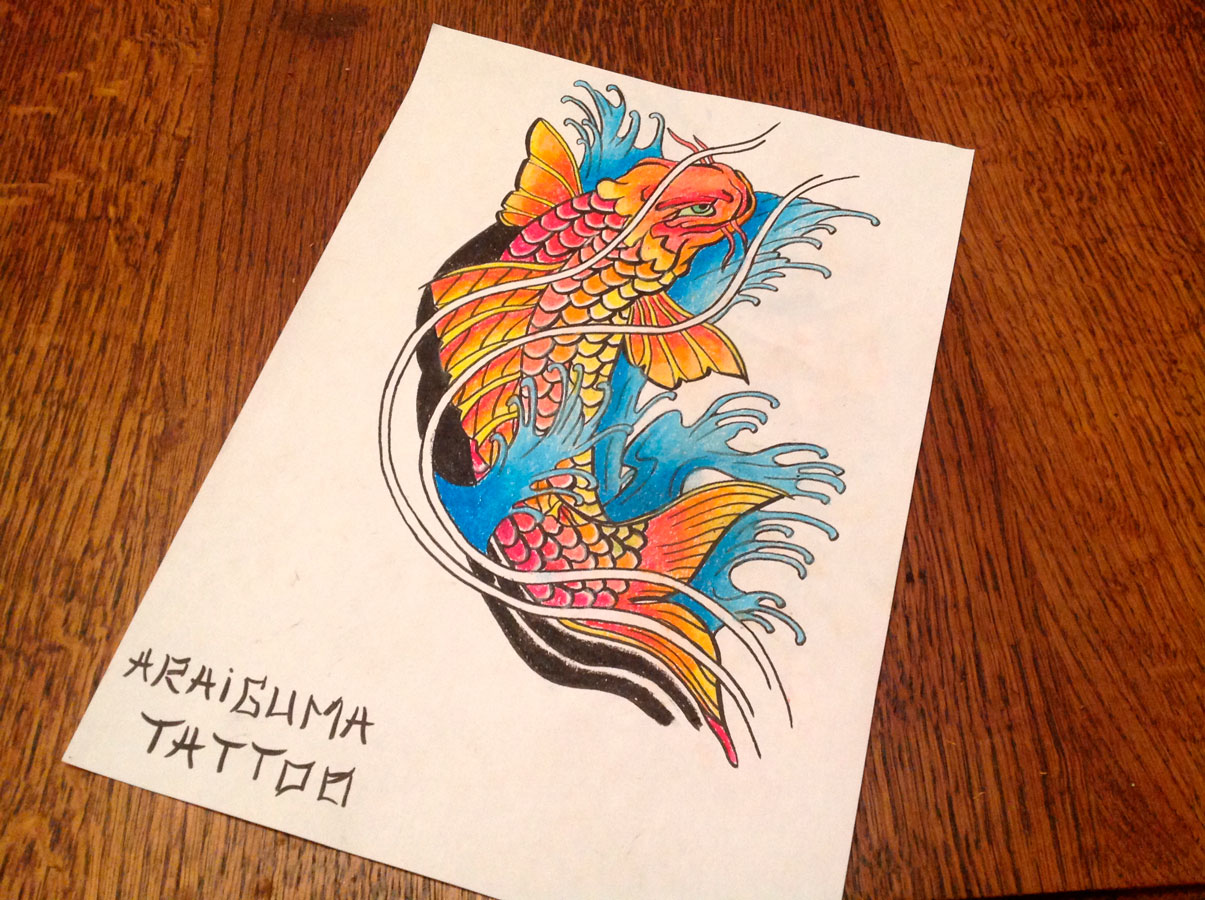 ARAiGUMA
TATTOO